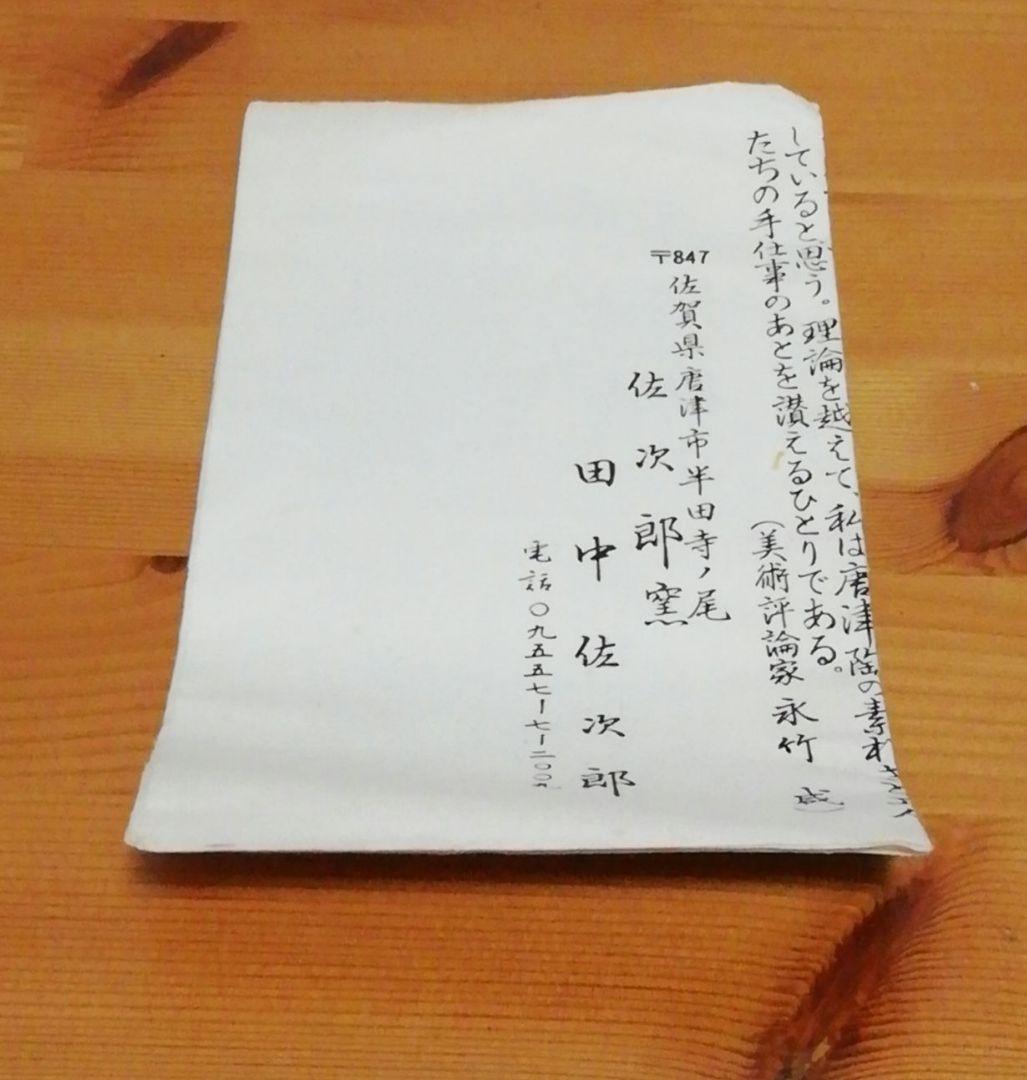 している と思う。理論を越えて、私は唐津陶の素朴さと人
たちの手仕事のあとを讃えるひとりである。
(美術評論家 永竹 威)
〒847
佐賀県唐津市半田寺ノ尾
佐次郎窯
田中佐次郎
電話〇九五五七ー七ー二〇〇